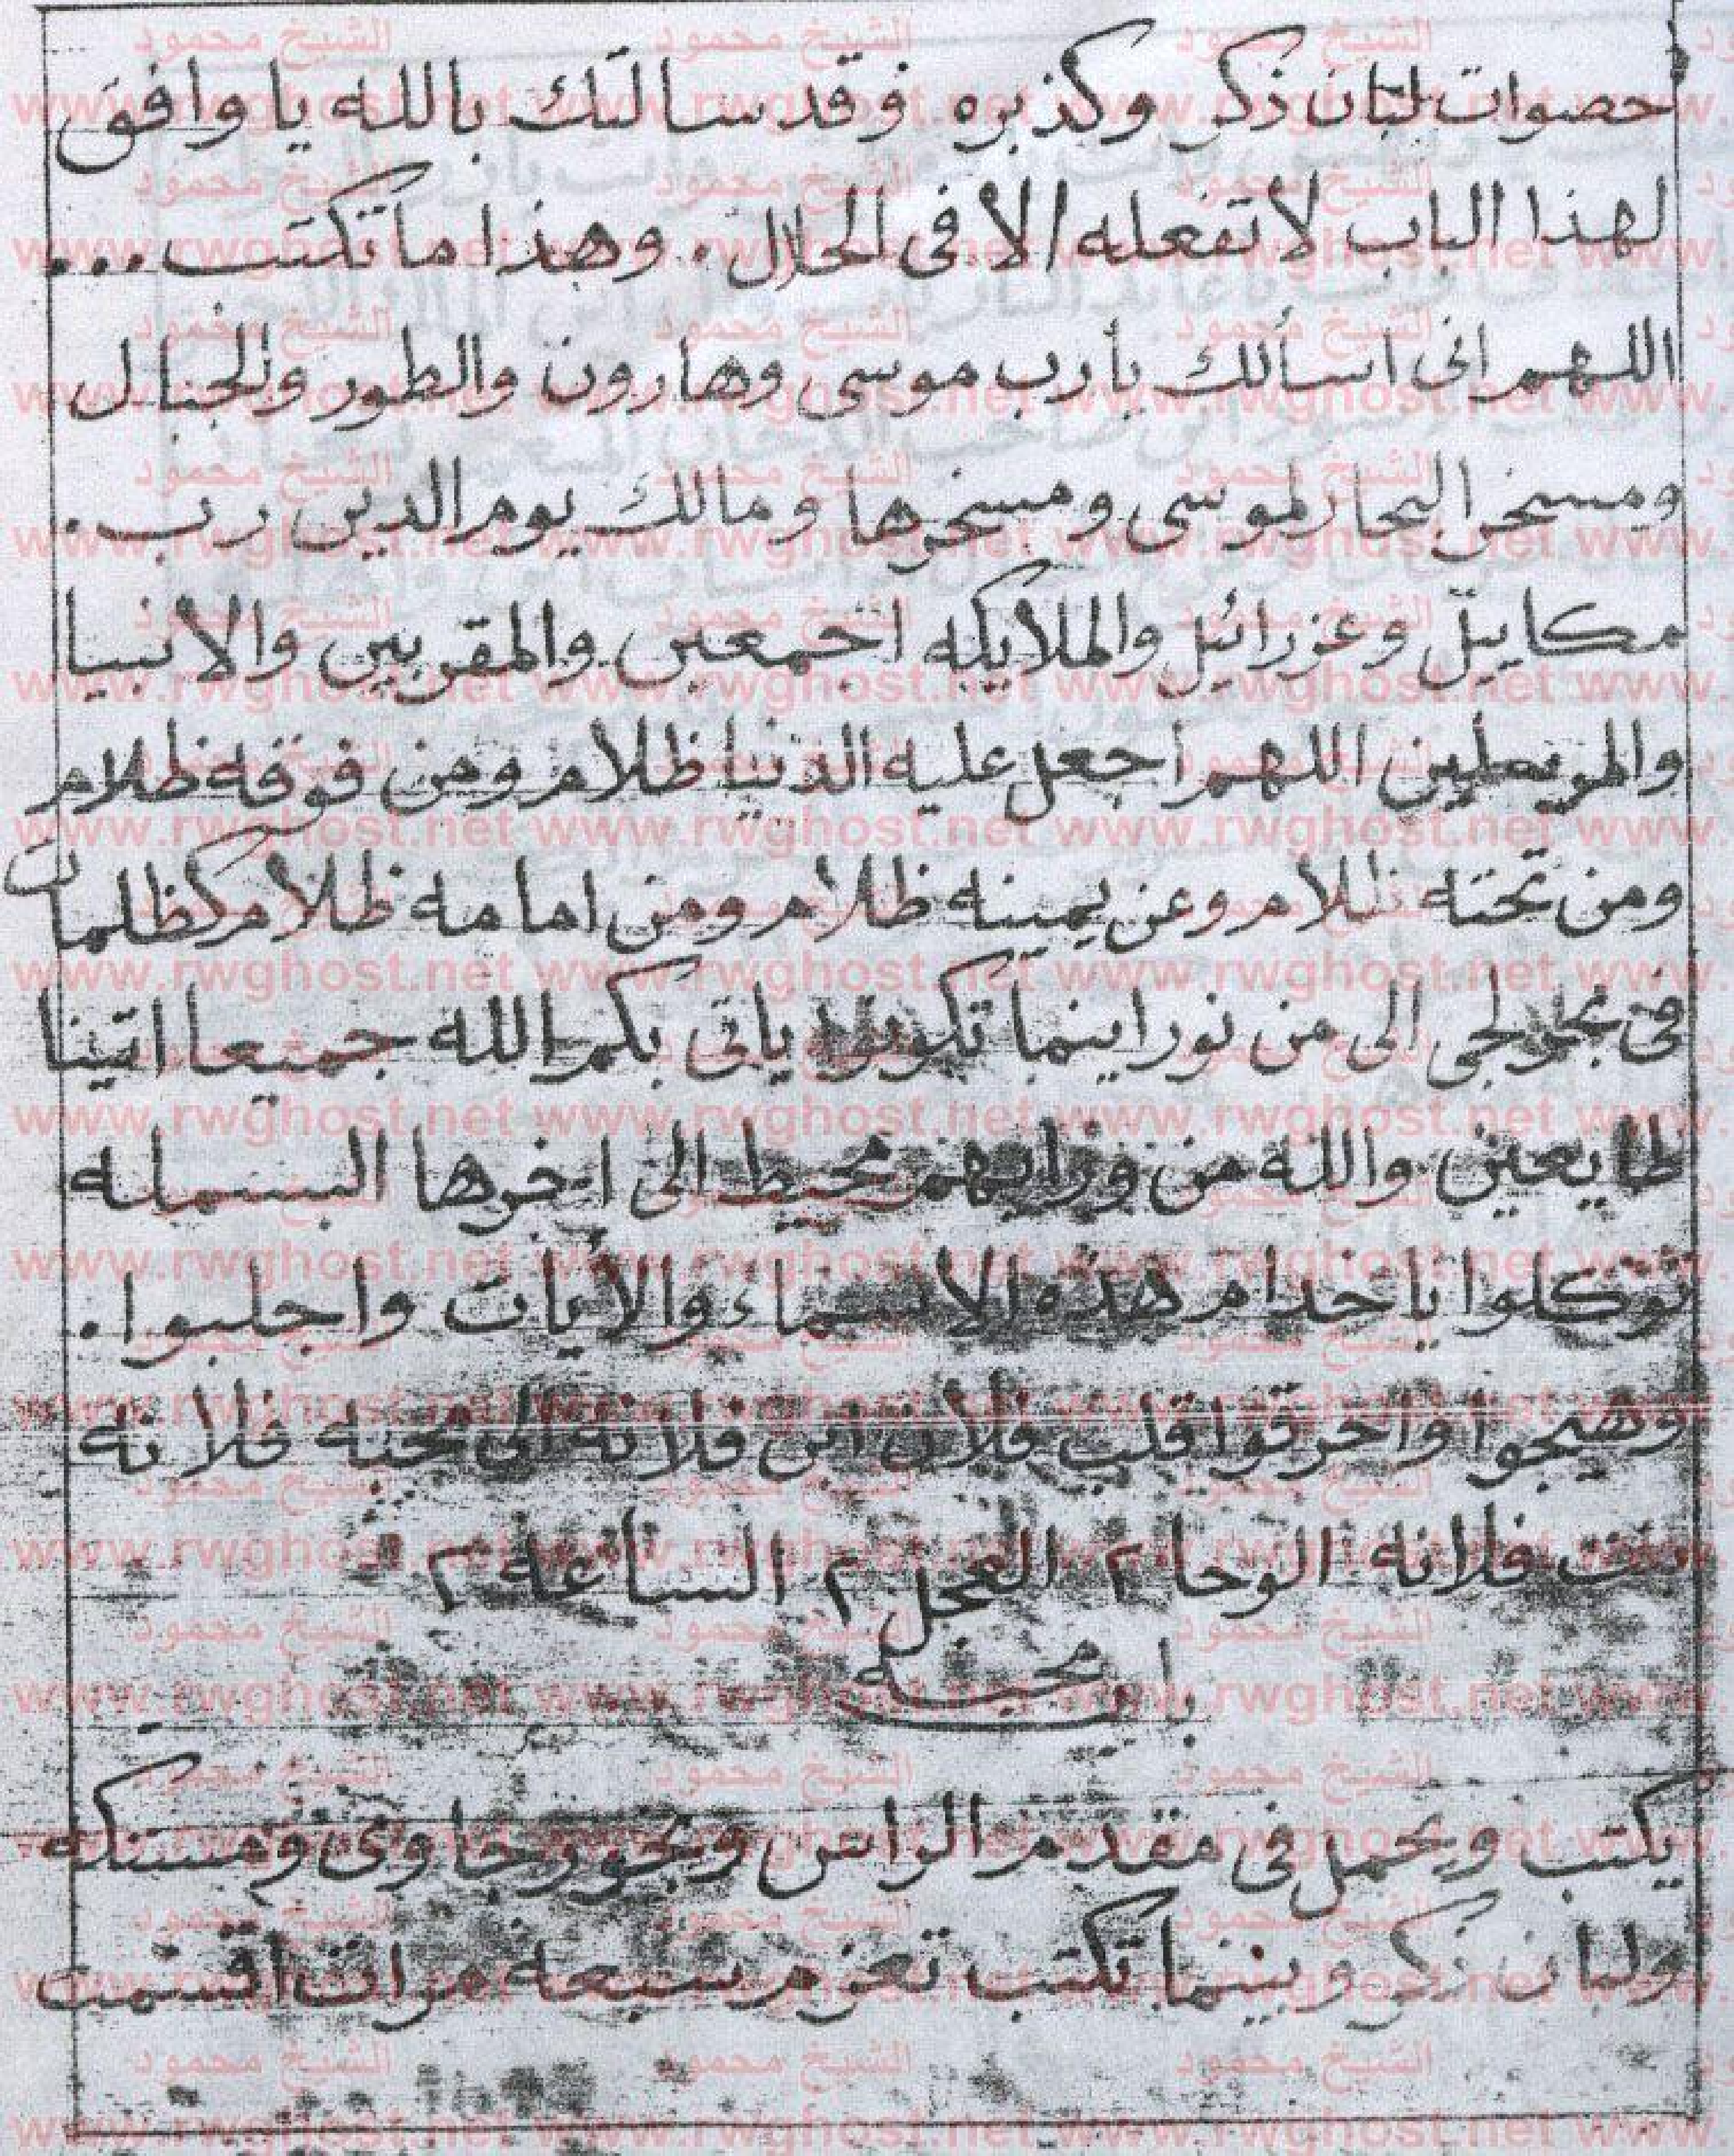 حصوات لبان ذكر وكذبره فقد سالتك بالله يا وافق
لهذا الباب لا تفعله الا فى الحلال. وهذا ما تكتب...
اللهم انى اسألك يارب موسى وهارون والطور والجبال
ومسخر البحار لموسى ومسخرها ومالك يوم الدين رب.
مكاييل وعزرائيل والملايكه اجمعين والمقربين والانبيا
والمرسلين اللهم اجعل عليه الدنيا ظلام ومن فوقه ظلام
ومن تحته ظلام وعن يمينه ظلام ومن امامه ظلام كظلمات
فى بحر لجى الى من نور اينما تكونوا ياتى بكم الله جميعا اتينا
طايعين والله من ورايهم محيط الى اخرها البسمله
توكلوا يا خدام هذه الاسماء والأيات واجلبوا.
وهيجوا واحرقوا قلب فلان ابن فلانه الى محبه فلانه
بنت فلانه الوحا ٢ العجل ٢ الساعه ٢
باب محبه
يكتب ويحمل فى مقدم الراس وبخور جاوى ومستكه
ولبان ذكر وبينما تكتب تعزم سبعه مرات اقسمت
الشيخ محمود
www.rwghost.net